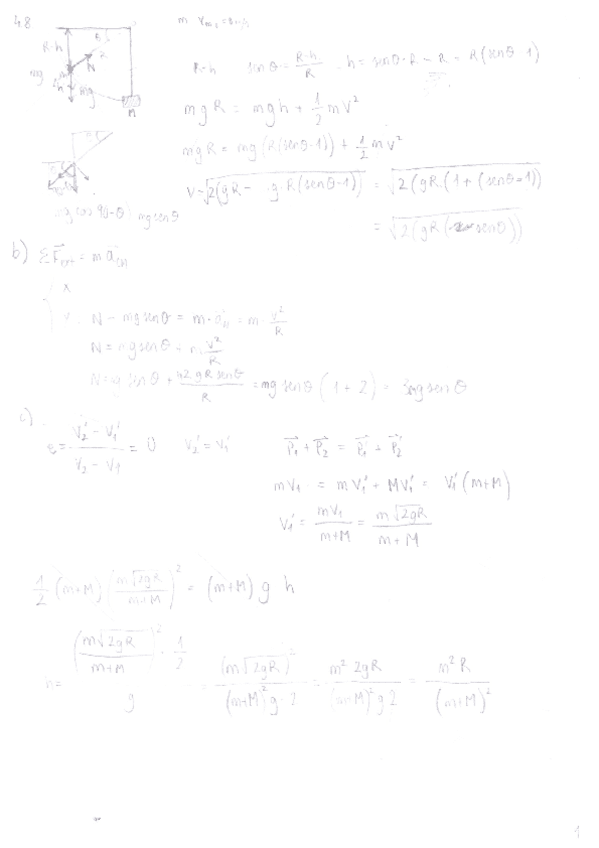 48
R-h
mg
N
M
R-h senθ = R-h / R h = senθ·R - R = R(senθ-1)
mgR = mgh + 1/2 mv²
mgR = mg(R(senθ-1)) + 1/2 mv²
v = √2(gR - g·R(senθ-1)) = √2(gR(1+(senθ-1))
= √2(gR(senθ))
mg senθ
b) ΣF⃗ext = m a⃗cn
x
y. N - mg senθ = m·acn = m· v²/R
N = mg senθ + m v²/R
senθ + 2gR senθ / R = mg senθ (1+2) = 3mg senθ
c) e = V₂' - V₁' / V₂ - V₁ = 0 V₂' = V₁' P⃗₁ + P⃗₂ = P⃗₁' + P⃗₂'
mV₁ = mV₁' + MV₁' = V₁'(m+M)
V₁' = mV₁ / m+M = m√2gR / m+M
1/2 (m+M) (m√2gR / m+M)² = (m+M) g h
h = (m√2gR / m+M)² · 1/2 / g = (m√2gR)² / (m+M)² g·2 = m² 2gR / (m+M)² g2 = m²R / (m+M)²
1